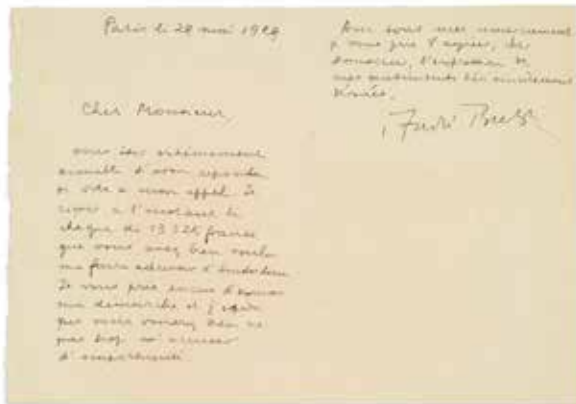 Paris le 29 mai 1929
Cher Monsieur
vous êtes extrêmement
aimable d'avoir répondu
si vite à mon appel. Je
reçois à l'instant le
chèque de 13 325 francs
que vous avez bien voulu
me faire adresser d'Amsterdam
Je vous prie encore d'excuser
ma démarche et j'espère
que vous voudrez bien ne
pas trop m'accuser
d'
Avec tous mes remerciements
je vous prie d'agréer, cher
Monsieur, l'expression de
mes sentiments très sincèrement
dévoués.
André Breton